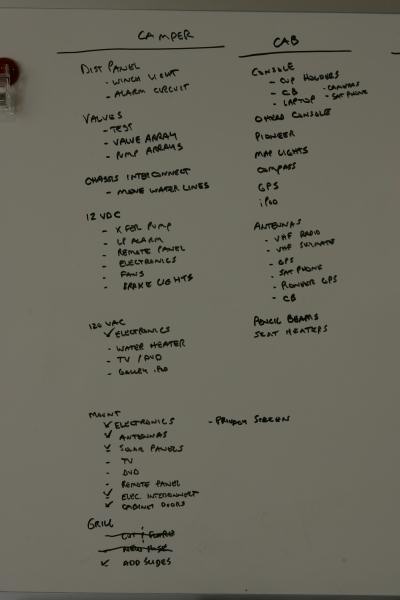 CAMPER
DIST PANEL
- WINCH LIGHT
- ALARM CIRCUIT
VALVES
- TEST
- VALVE ARRAY
- PUMP ARRAYS
CHASSIS INTERCONNECT
- MOVE WATER LINES
12 VDC
- XFER PUMP
- LP ALARM
- REMOTE PANEL
- ELECTRONICS
- FANS
- BRAKE LIGHTS
120 VAC
✓ ELECTRONICS
- WATER HEATER
- TV / DVD
- GALLEY iPOD
MOUNT
✓ ELECTRONICS - PRIVACY SCREEN
✓ ANTENNAS
✓ SOLAR PANELS
- TV
- DVD
- REMOTE PANEL
✓ ELEC. INTERCONNECT
✓ CABINET DOORS
GRILL
- NEW HOSE
✓ ADD SLIDES
CAB
CONSOLE
- CUP HOLDERS
- CB - CAMERAS
- LAPTOP - SAT PHONE
OHEAD CONSOLE
PIONEER
MAP LIGHTS
COMPASS
GPS
iPOD
ANTENNAS
- VHF RADIO
- VHF
- GPS
- SAT PHONE
- PIONEER GPS
- CB
PENCIL BEAMS
SEAT HEATERS